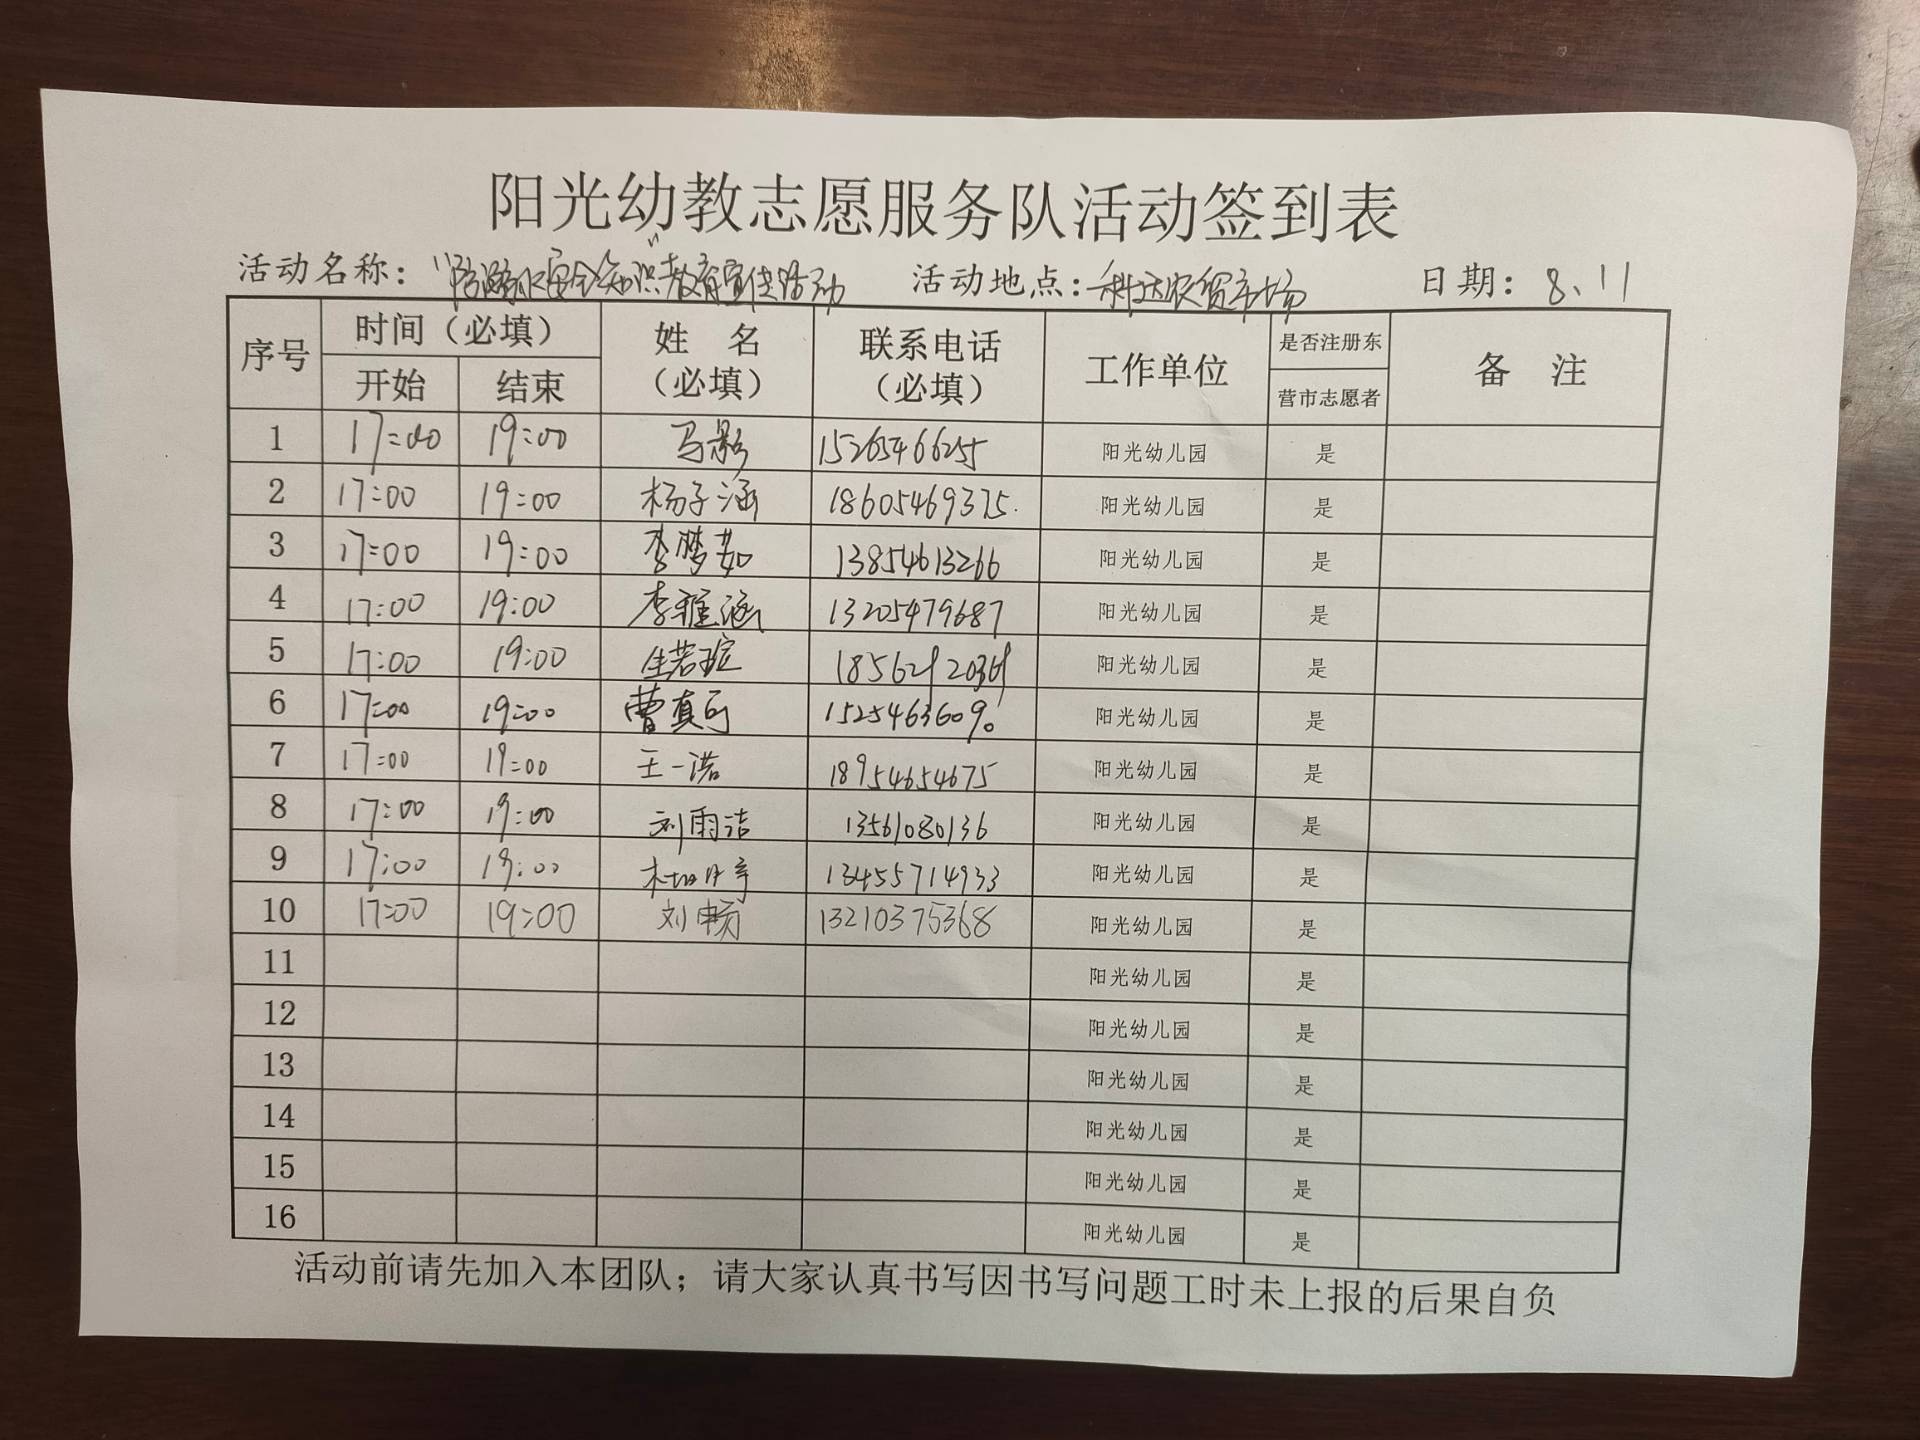 阳光幼教志愿服务队活动签到表
活动名称："防溺水安全知识"教育宣传活动 活动地点：科达农贸市场 日期：8、11
序号 时间（必填） 开始 结束 姓 名（必填） 联系电话（必填） 工作单位 是否注册东营市志愿者 备 注
1 17:00 19:00 马影 15265466255 阳光幼儿园 是
2 17:00 19:00 杨子涵 18605469375. 阳光幼儿园 是
3 17:00 19:00 李梦茹 13854613266 阳光幼儿园 是
4 17:00 19:00 李雅涵 13205479687 阳光幼儿园 是
5 17:00 19:00 生若瑄 阳光幼儿园 是
6 17:00 19:00 曹真可 阳光幼儿园 是
7 17:00 19:00 王一诺 18954654675 阳光幼儿园 是
8 17:00 19:00 刘雨洁 13561080136 阳光幼儿园 是
9 17:00 19:00 13455714933 阳光幼儿园 是
10 17:00 19:00 刘畅 13210375368 阳光幼儿园 是
11 阳光幼儿园 是
12 阳光幼儿园 是
13 阳光幼儿园 是
14 阳光幼儿园 是
15 阳光幼儿园 是
16 阳光幼儿园 是
活动前请先加入本团队；请大家认真书写因书写问题工时未上报的后果自负